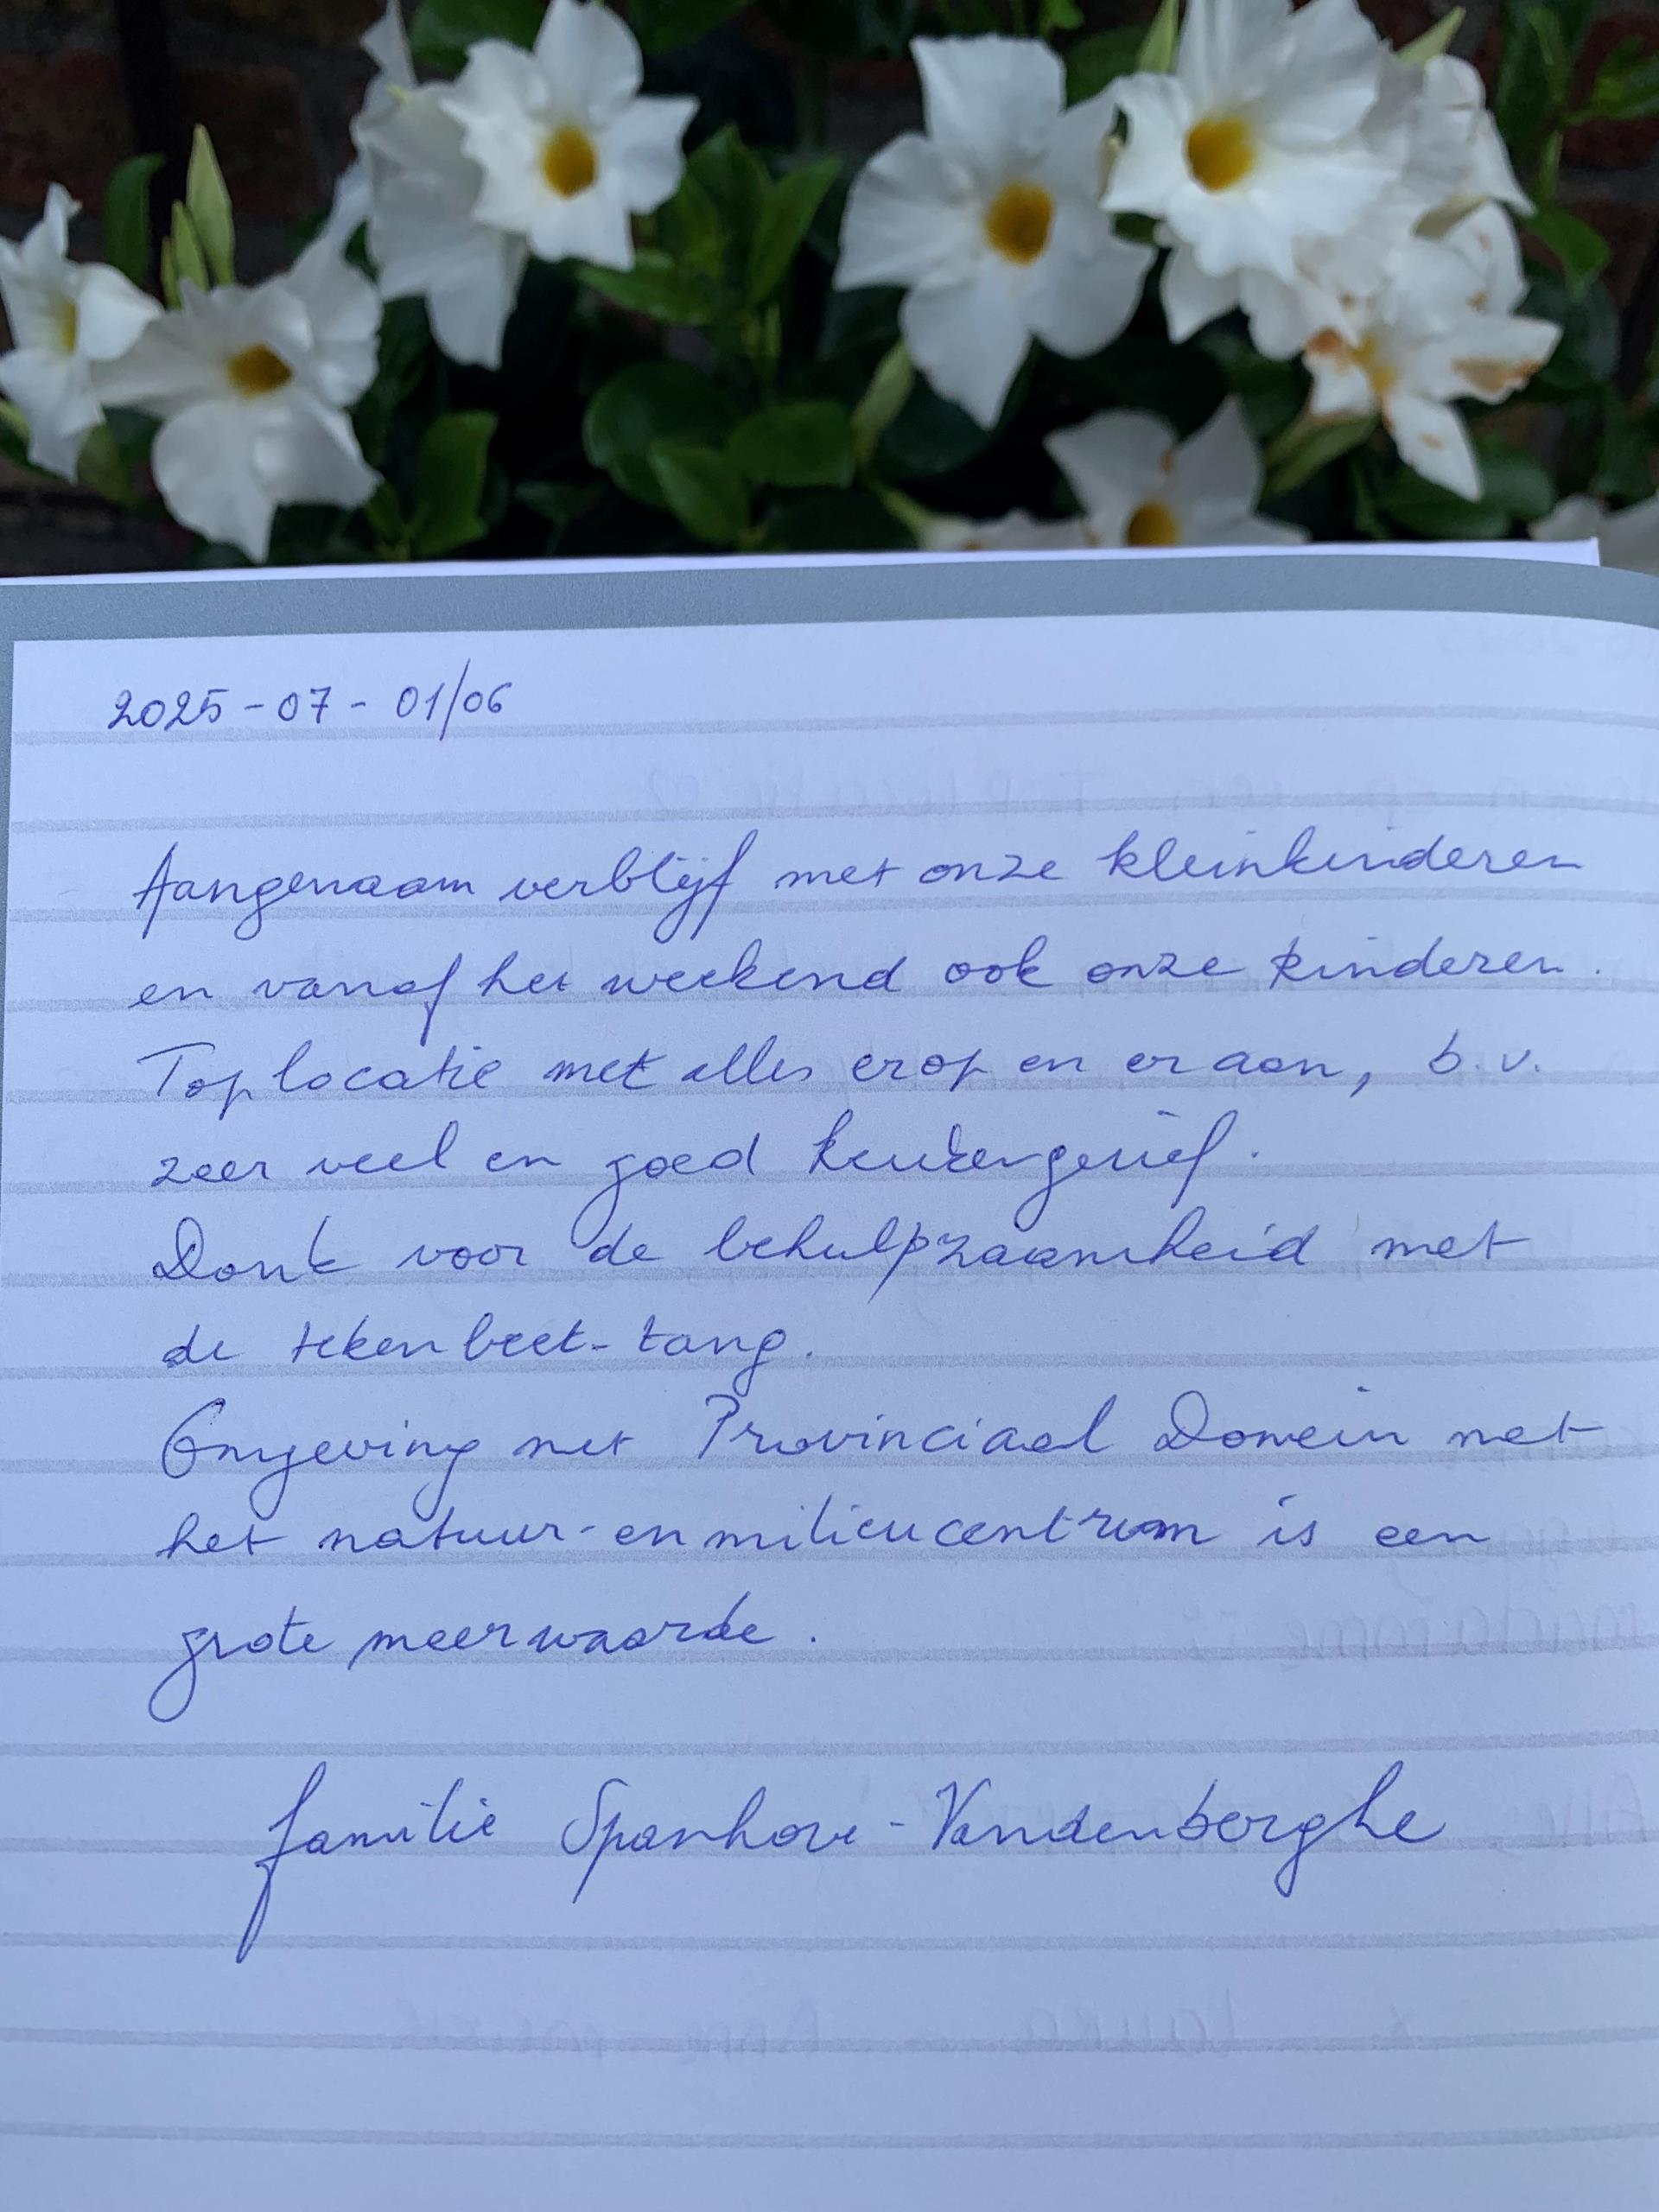 2025-07-01/06
Aangenaam verblijf met onze kleinkinderen
en vanaf het weekend ook onze kinderen.
Top locatie met alles erop en eraan, b.v.
zeer veel en goed keukengerief.
Dank voor de behulpzaamheid met
de tekenbeet-tang.
Omgeving met Provinciaal Domein met
het natuur- en milieucentrum is een
grote meerwaarde.
familie Spanhove-Vandenberghe